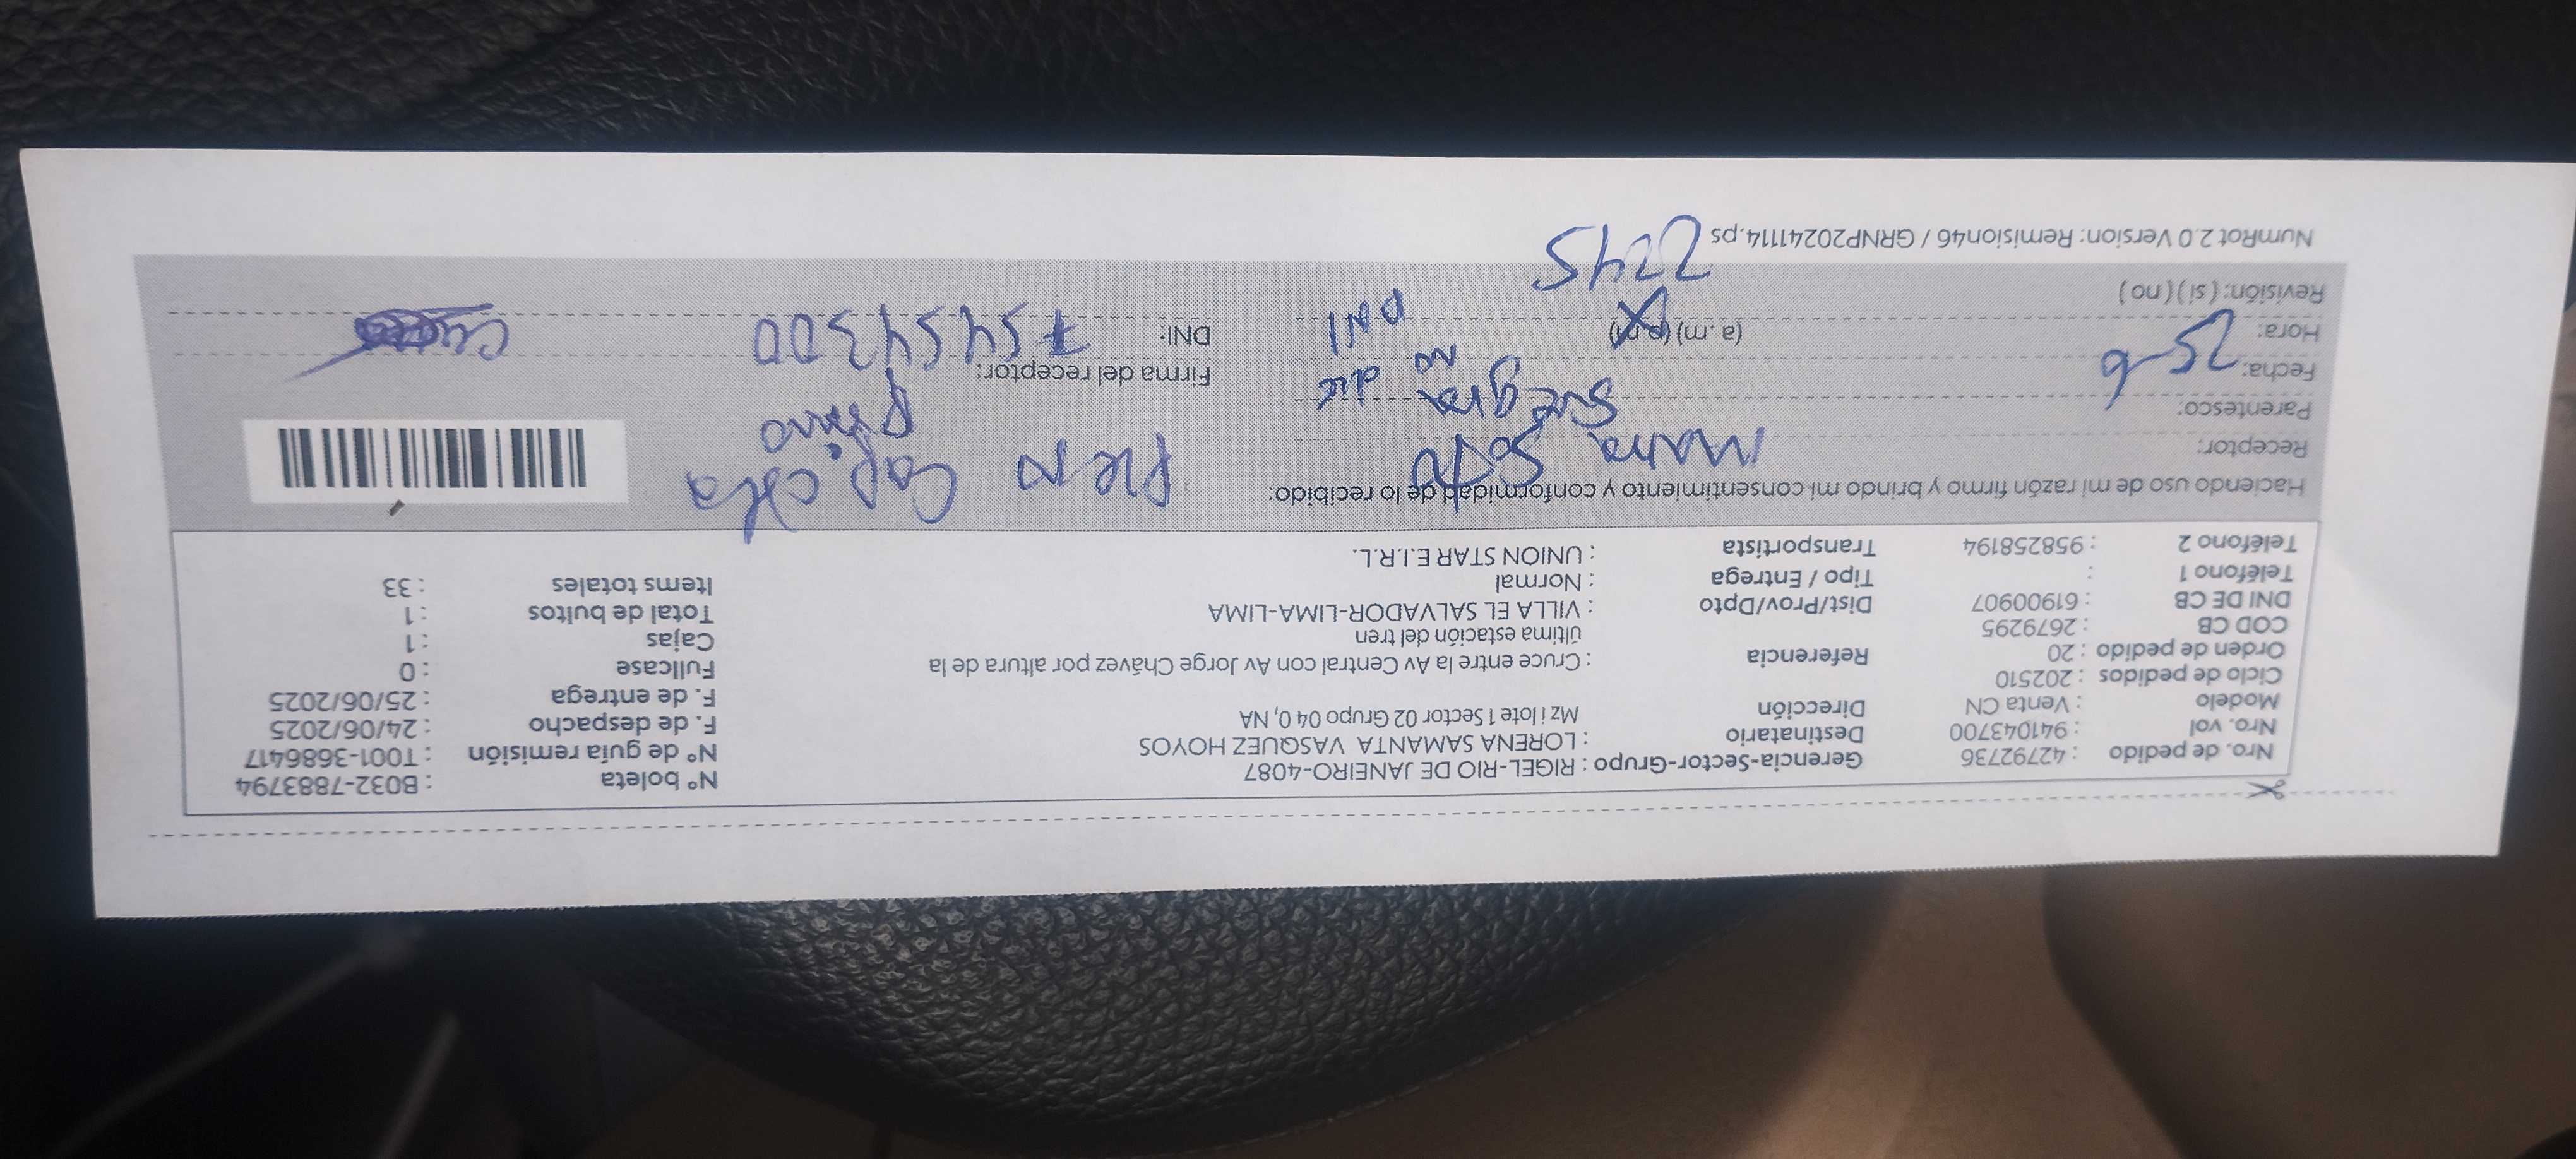 Nro. de pedido : 42792736
Nro. vol : 941043700
Modelo : Venta CN
Ciclo de pedidos : 202510
Orden de pedido : 20
COD CB : 2679295
DNI DE CB : 61900907
Teléfono 1 :
Teléfono 2 : 958258194
Gerencia-Sector-Grupo : RIGEL-RIO DE JANEIRO-4087
Destinatario : LORENA SAMANTA VASQUEZ HOYOS
Dirección Mz i lote 1 Sector 02 Grupo 04 0, NA
Referencia : Cruce entre la Av Central con Av Jorge Chávez por altura de la
última estación del tren
Dist/Prov/Dpto : VILLA EL SALVADOR-LIMA-LIMA
Tipo / Entrega : Normal
Transportista : UNION STAR E.I.R.L.
N° boleta : B032-7883794
N° de guía remisión : T001-3686417
F. de despacho : 24/06/2025
F. de entrega : 25/06/2025
Fullcase : 0
Cajas : 1
Total de bultos : 1
Items totales : 33
Haciendo uso de mi razón firmo y brindo mi consentimiento y conformidad de lo recibido:
Receptor: Maria Soto
Parentesco: Suegra
Fecha: 25-6
Hora: (a.m) (p.m)
Revisión: ( sí ) ( no )
2245
no
DNI
Firma del receptor:
DNI:
NumRot 2.0 Version: Remision46 / GRNP20241114.ps